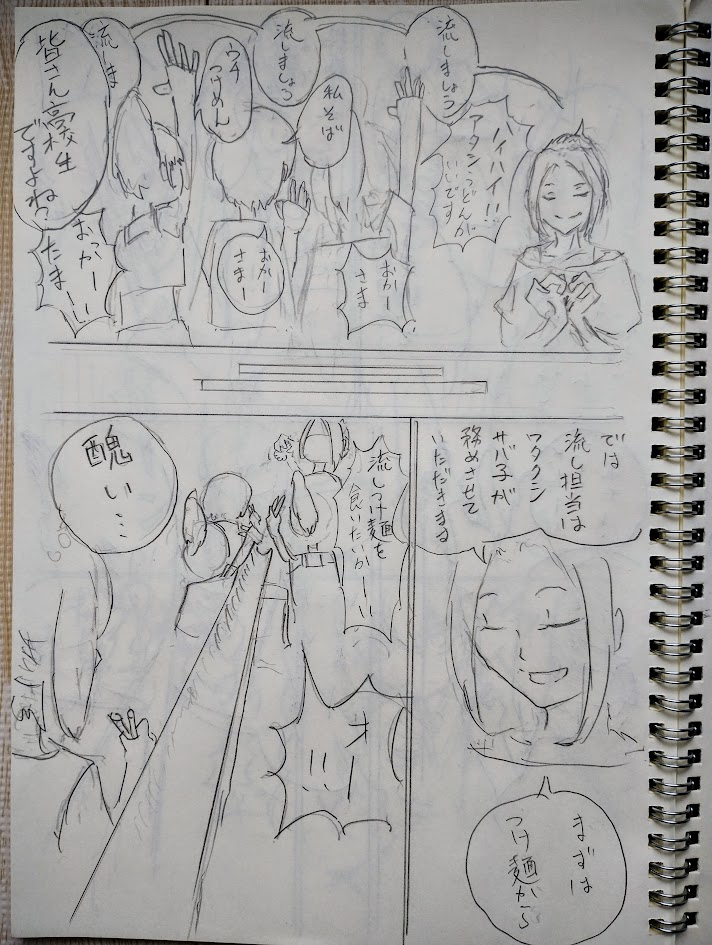 流しましょう
ハイハイ!!
アタシ、うどんが
いいです
私そば
流しましょう
ウチ
つけめん
流しま
おかー
さま
おかー
さまー
皆さん高校生
ですよね?
おっかー
たまーー!!
では
流し担当は
ワタクシ
サバ子が
務めさせて
いただきまる
まずは
つけ麺から
流しつけ麺を
食いたいかーー!!
オー!!
醜い…